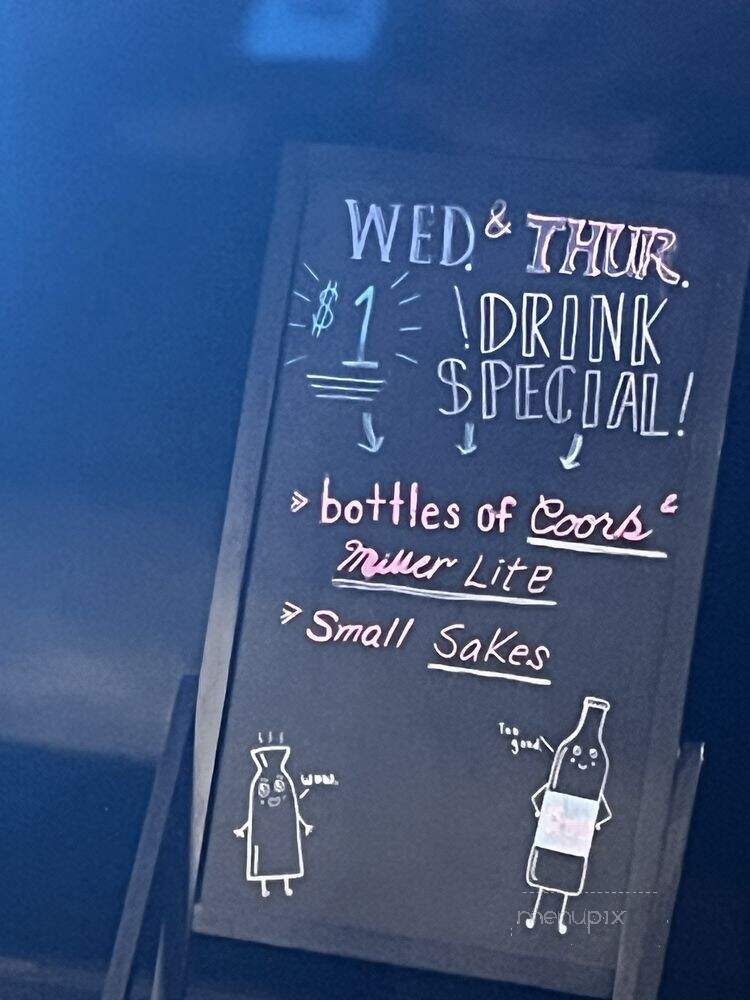 WED. & THUR.
$1 !DRINK
SPECIAL!
» bottles of Coors &
Miller Lite
» Small Sakes
Too
good.
wow.
menupix